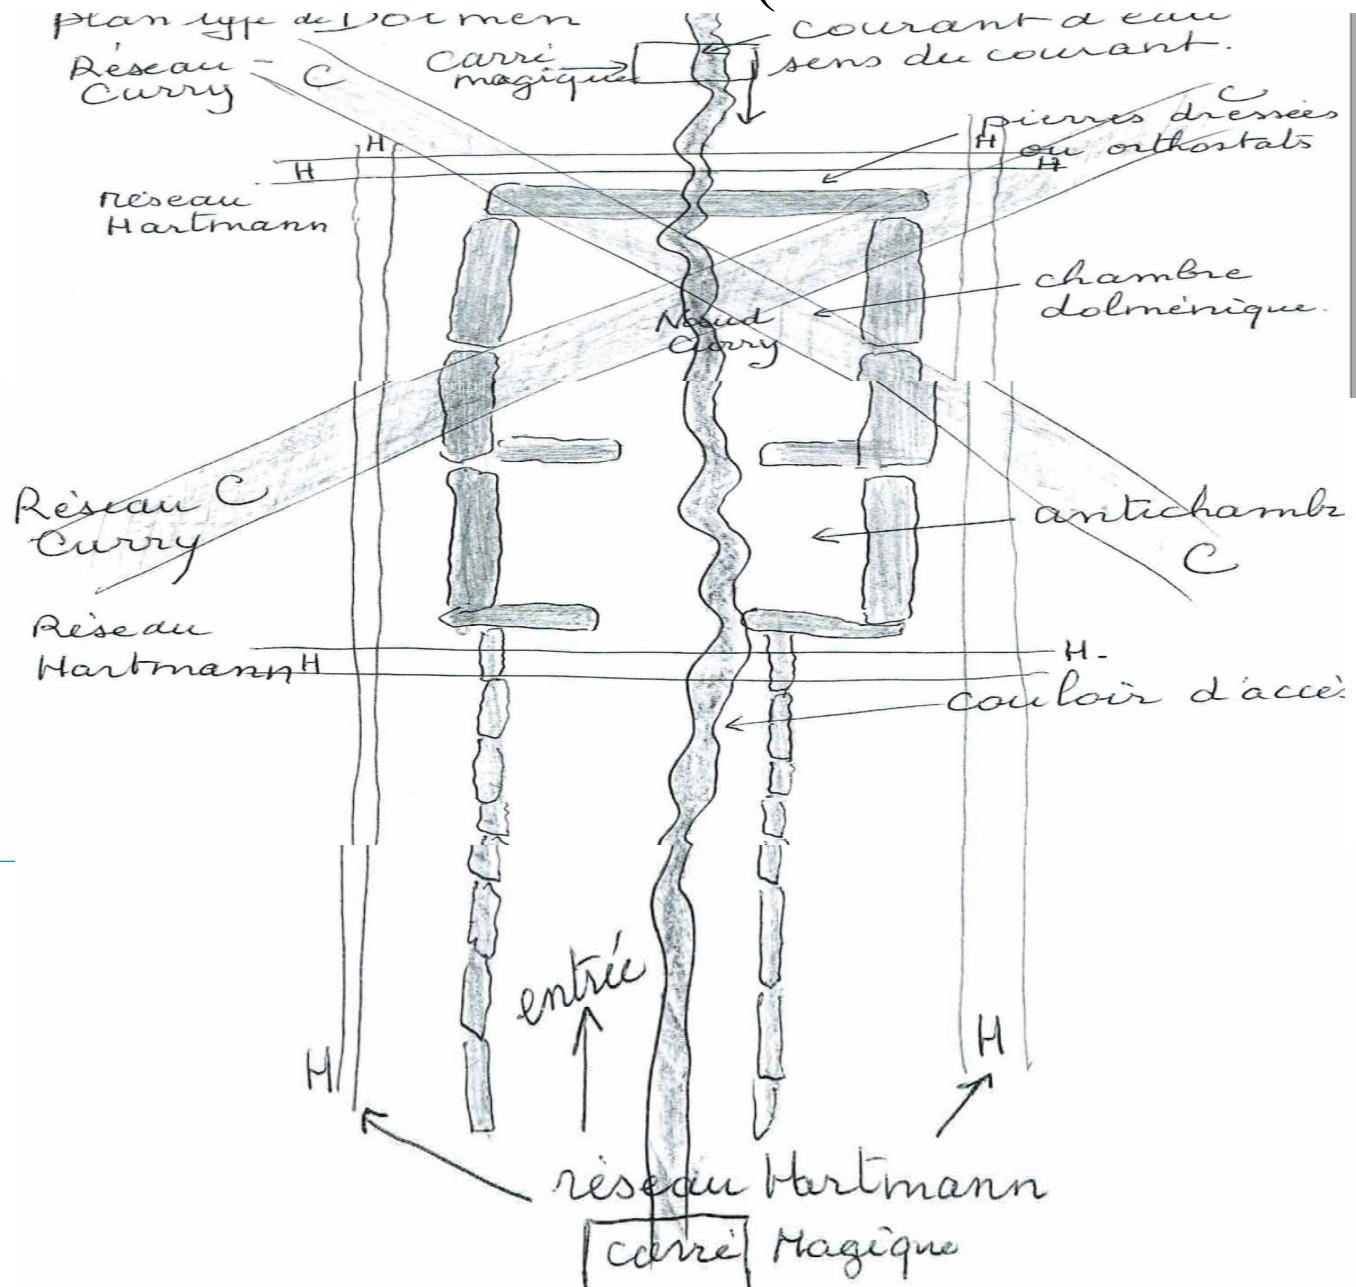 plan type de Dolmen
courant d'eau
sens du courant.
Réseau -
Curry
C
Carré
magique
C
pierres dressées
ou orthostats
H
H
H
H
réseau
Hartmann
chambre
dolménique.
Nœud
Curry
Réseau C
Curry
antichambr
C
Réseau
Hartmann H
H -
couloir d'accès
entrée
H
H
réseau Hartmann
Carré Magique